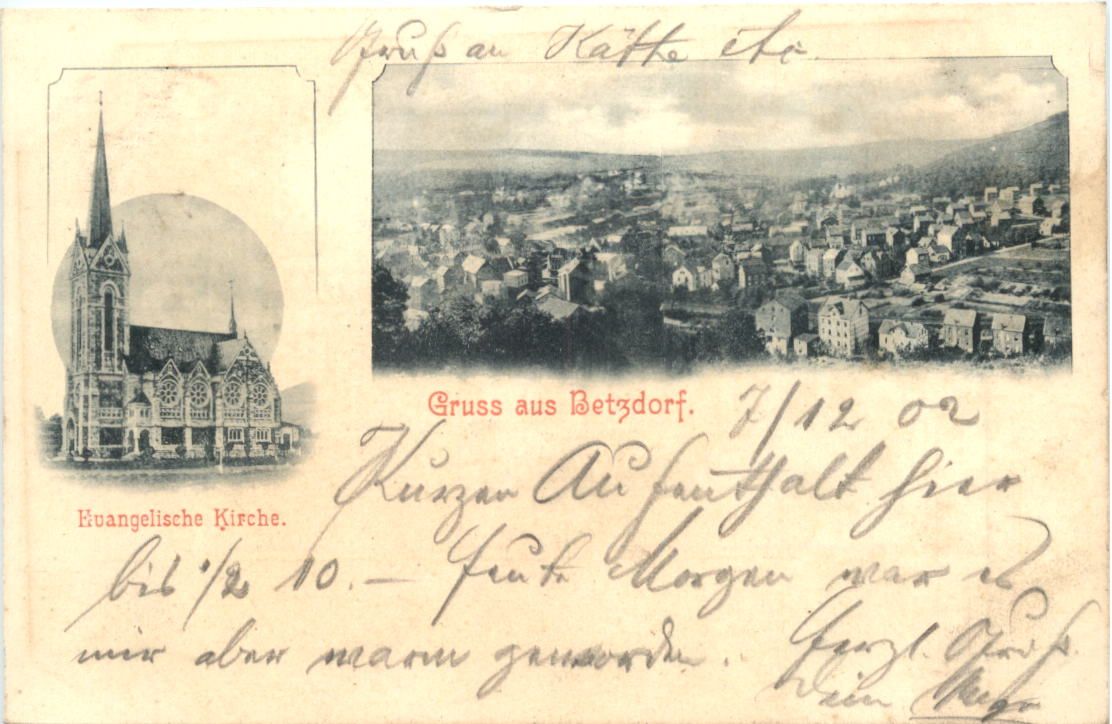 Gruß an Käthe etc.
Gruss aus Betzdorf.
7/12 02
Evangelische Kirche.
Kurzen Aufenthalt hier
bis 1/2 10. — Heute Morgen war es
mir aber warm geworden.. Herzl. Gruß.
Dein Hugo